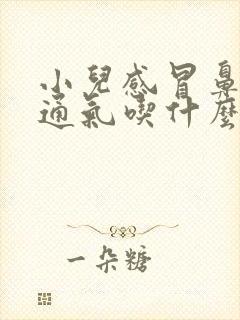 小兒感冒鼻
通氣喫什麼
一朵糖